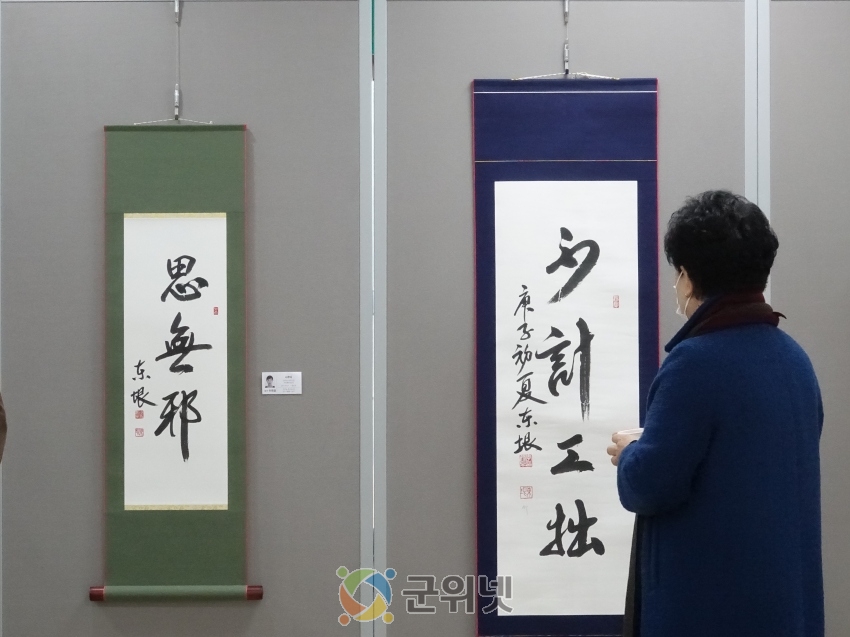 思無邪
东垠
不計工拙
庚子初夏东垠
군위넷